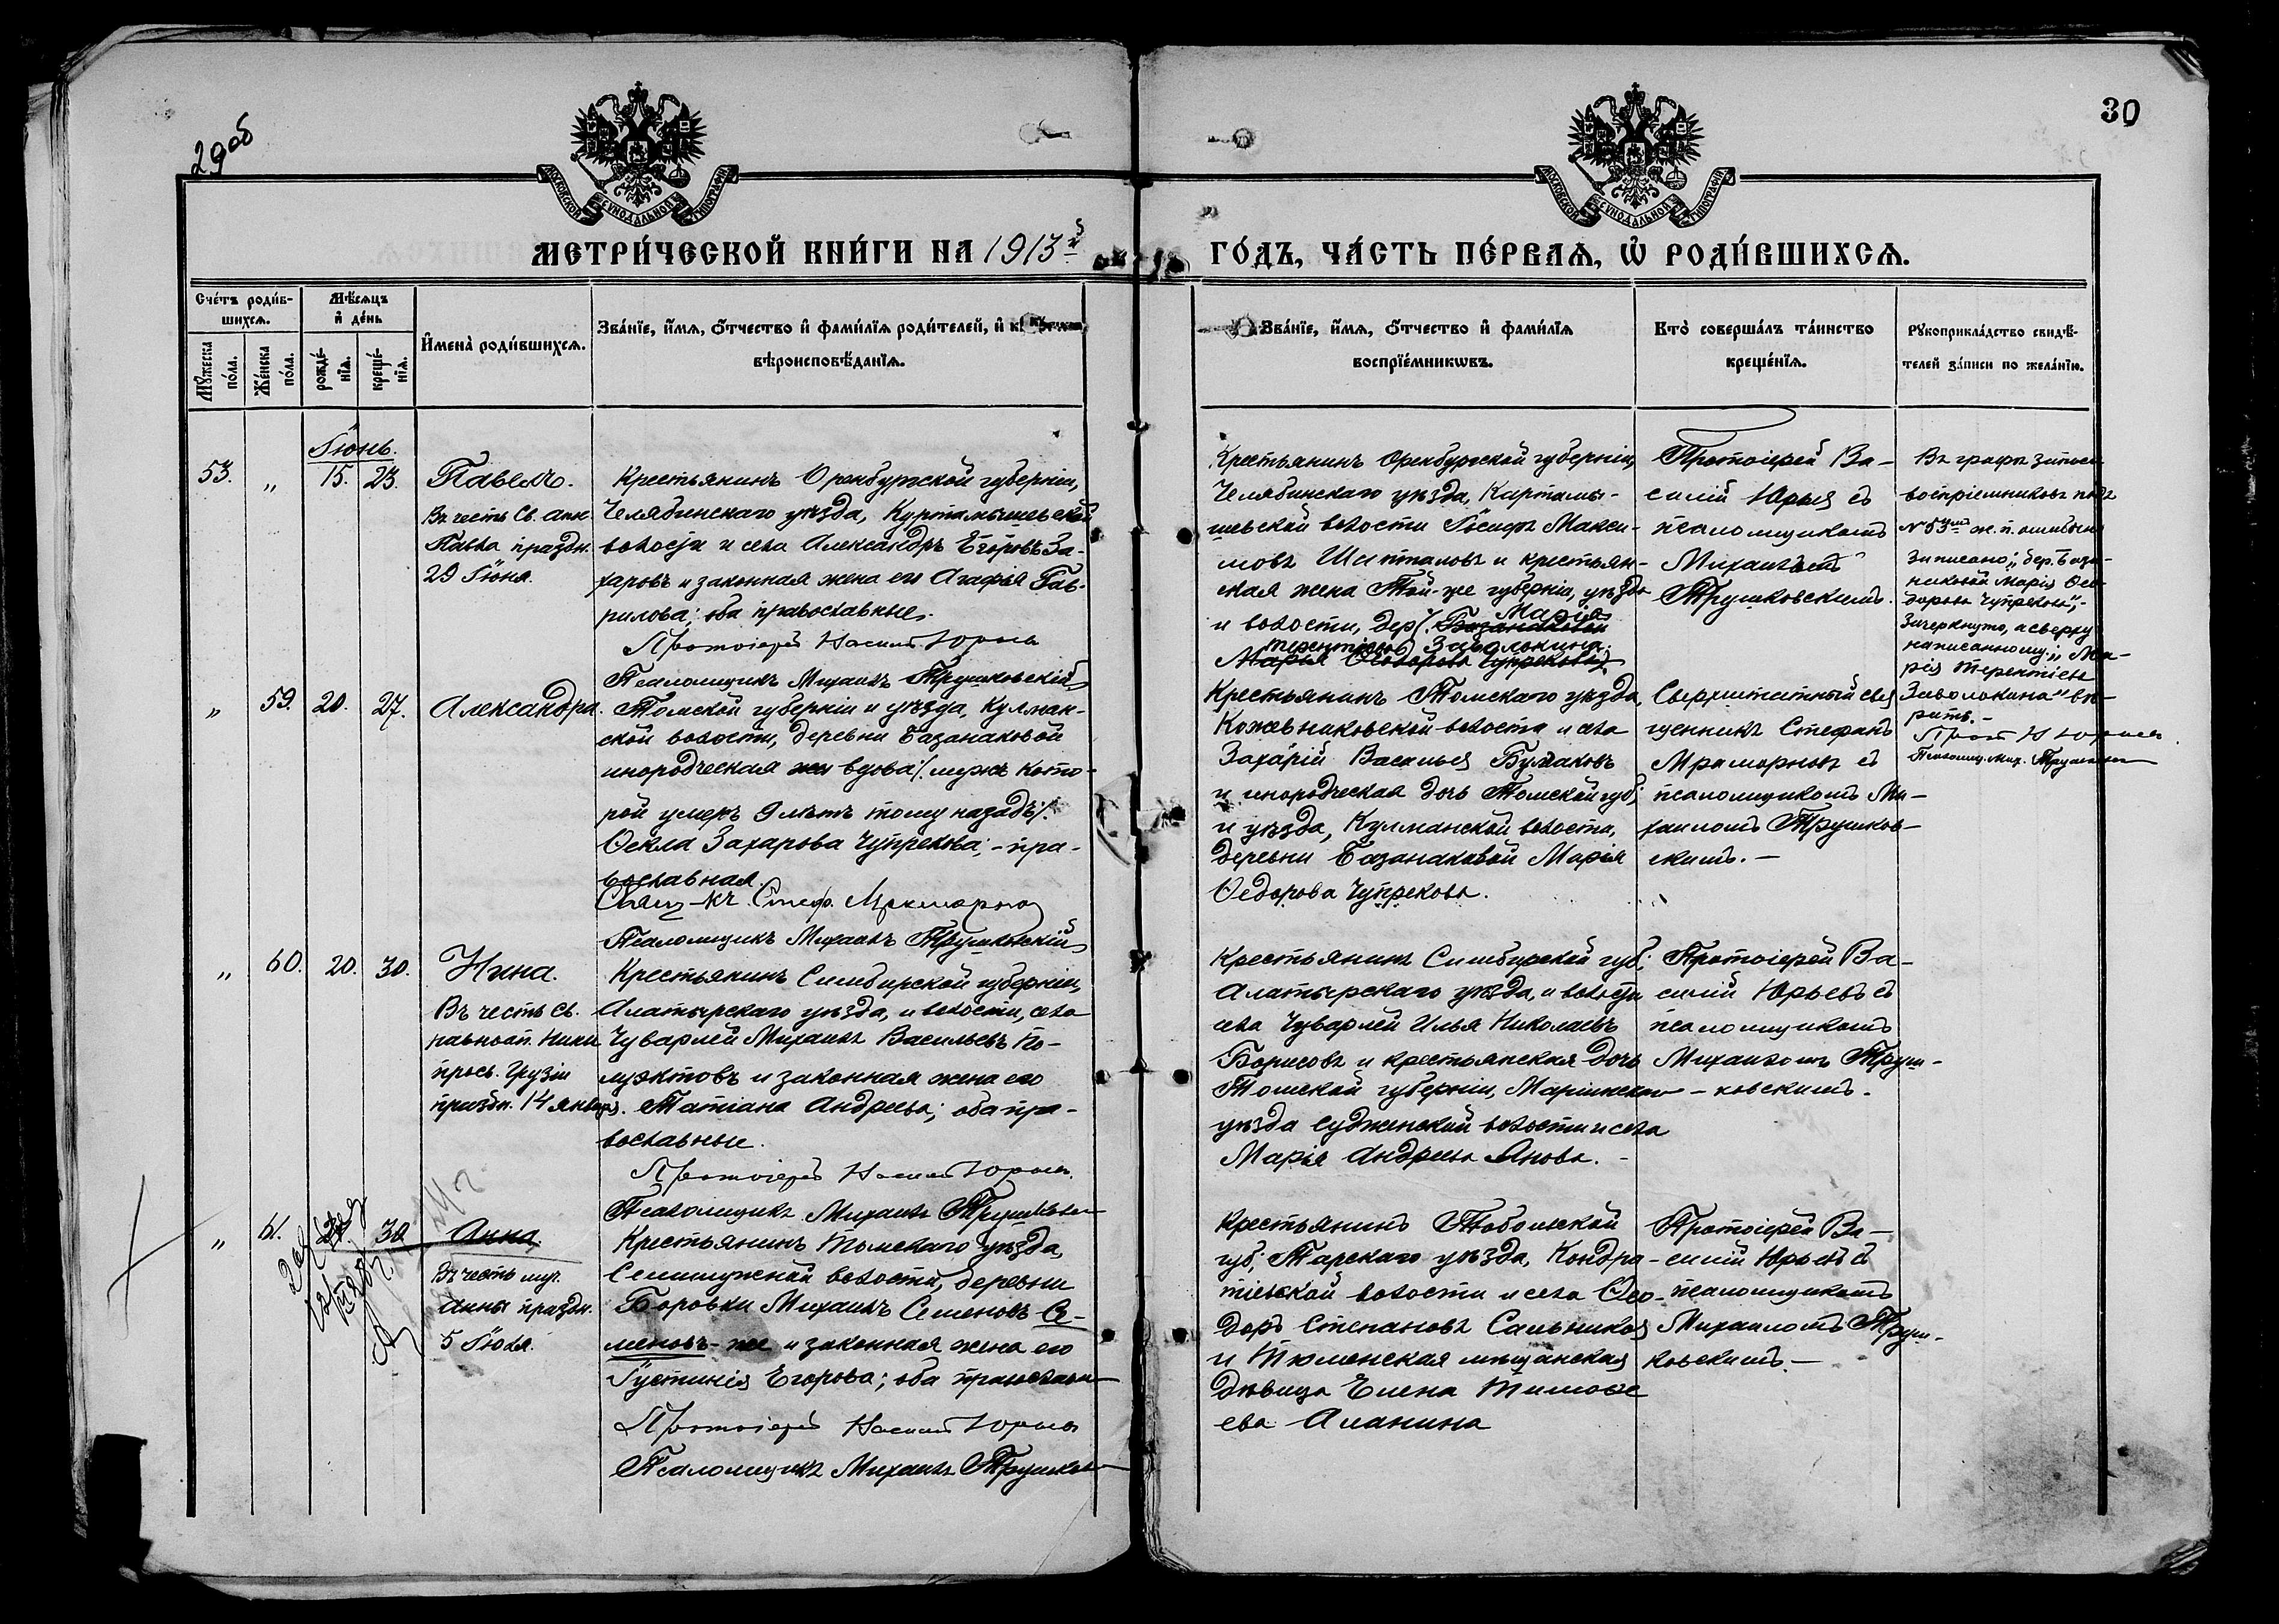 29об
30
МОСКОВСКОЙ СѴНОДАЛЬНОЙ ТИПОГРАФІИ
МОСКОВСКОЙ СѴНОДАЛЬНОЙ ТИПОГРАФІИ
МЕТРИ́ЧЕСКОЙ КНИ́ГИ НА 1913й
ГО́ДЪ, ЧА́СТЬ ПЕ́РВАѦ, Ѡ҆ РОДИ́ВШИХСѦ.
Сче́тъ роди́в-
шихсѧ.
Мꙋ́жеска по́ла.
Же́нска по́ла.
Мѣ́сѧцъ
и҆ де́нь
рожде́-
нїѧ.
креще́-
нїѧ.
И҆мена̀ роди́вшихсѧ.
Зва́нїе, и҆́мѧ, ѻ҆́тчество и҆ фами́лїѧ роди́телей, и҆
вѣроисповѣ́данїѧ.
Зва́нїе, и҆́мѧ, ѻ҆́тчество и҆ фами́лїѧ
воспрїе́мникѡвъ.
Кто̀ соверша́лъ та́инство
креще́нїѧ.
Рꙋкоприкла́дство свидѣ́-
телей за́писи по жела́нїю.
Іюнь.
53. „ 15. 23.
Павелъ.
Въ честь Св. апп.
Павла праздн.
29 Іюня.
Крестьянинъ Оренбургской губерніи,
Челябинскаго уѣзда, Куртамышевской
волости и села Александръ Егоровъ За-
харовъ и законная жена его Агафія Гав-
рилова; оба православные.
Протоіерей Василій Юрьевъ
Псаломщикъ Михаилъ Трушковскій
Крестьянинъ Оренбургской губерніи,
Челябинскаго уѣзда, Картамы-
шевской волости Іосифъ Макси-
мовъ Шипталовъ и крестьян-
ская жена Той-же губерніи, уѣзда
и волости, дер. Базанаковой Марія
Терентіева Заволокина.
Марья Ѳеодорова Чупрекова
Протоіерей Ва-
силій Юрьев съ
псаломщикомъ
Михаиломъ
Трушковскимъ.
Въ графѣ записи
воспріемниковъ подъ
№ 53ымъ м. п. ошибочно
записано: „дер. База-
наковой Марія Ѳео-
дорова Чупрекова“,-
Зачеркнуто, а сверху
написанному: „Ма-
рія Терентіева
Заволокина“ вѣ-
рить.-
Прот. В Юрьевъ
Псаломщ. Мих. Трушковскій
„ 59. 20. 27.
Александра.
Томской губерніи и уѣзда, Кулман-
ской волости, деревни Базанаковой
инородческая жен вдова /. мужъ кото-
рой умеръ 9 лѣтъ тому назадъ/.
Ѳекла Захарова Чупрекова; - пра-
вославная.
Свящ-къ. Стеф. Мраморновъ
Псаломщикъ Михаилъ Трушковскій
Крестьянинъ Томскаго уѣзда,
Кожевниковской волости и села
Захарій Васильев Булаковъ
и инородческая дочь Томской губ.
и уѣзда, Кулманской волости,
деревни Базанаковой Марія
Ѳедорова Чупрекова.
Сверхштатный свя
щенникъ Стефанъ
Мраморновъ съ
псаломщикомъ Ми-
хаиломъ Трушков-
скимъ. -
„ 60. 20. 30.
Нина.
Въ честь Св.
равноап. Нины
просв. Грузіи
праздн. 14 января.
Крестьянинъ Симбирской губерніи,
Алатырскаго уѣзда, и волости, села
Чуварлей Михаилъ Васильевъ По-
луэктовъ и законная жена его
Татіана Андреева; оба пра-
вославные.
Протоіерей Василій Юрьевъ.
Псаломщикъ Михаилъ Трушковскій
Крестьянинъ Симбирской губ.
Алатырскаго уѣзда, и волости
села Чуварлей Илья Николаевъ
Борисовъ и крестьянская дочь
Томской губерніи, Маріинскаго
уѣзда Судженской волости и села
Марія Андреева Янова. -
Протоіерей Ва-
силій Юрьевъ съ
псаломщикомъ
Михаиломъ Труш-
ковскимъ.
„ 61. 30
Анна.
Въ честь муч.
Анны праздн.
5 Іюля.
Крестьянинъ Томскаго уѣзда,
Семилужной волости, деревни
Боровки Михаилъ Семеновъ Се-
меновъ-же и законная жена его
Іустинія Егорова; оба православн
Протоіерей Василій Юрьевъ
Псаломщикъ Михаилъ Трушков
Крестьянинъ Тобольской
губ. Тарскаго уѣзда, Кондра-
тіевской волости и села Ѳео-
доръ Степановъ Сальников
и Тюменская мѣщанская
дѣвица Елена Тимоѳе
ева Аланина
Протоіерей Ва-
силій Юрьевъ съ
псаломщикомъ
Михаиломъ Труш-
ковскимъ. -